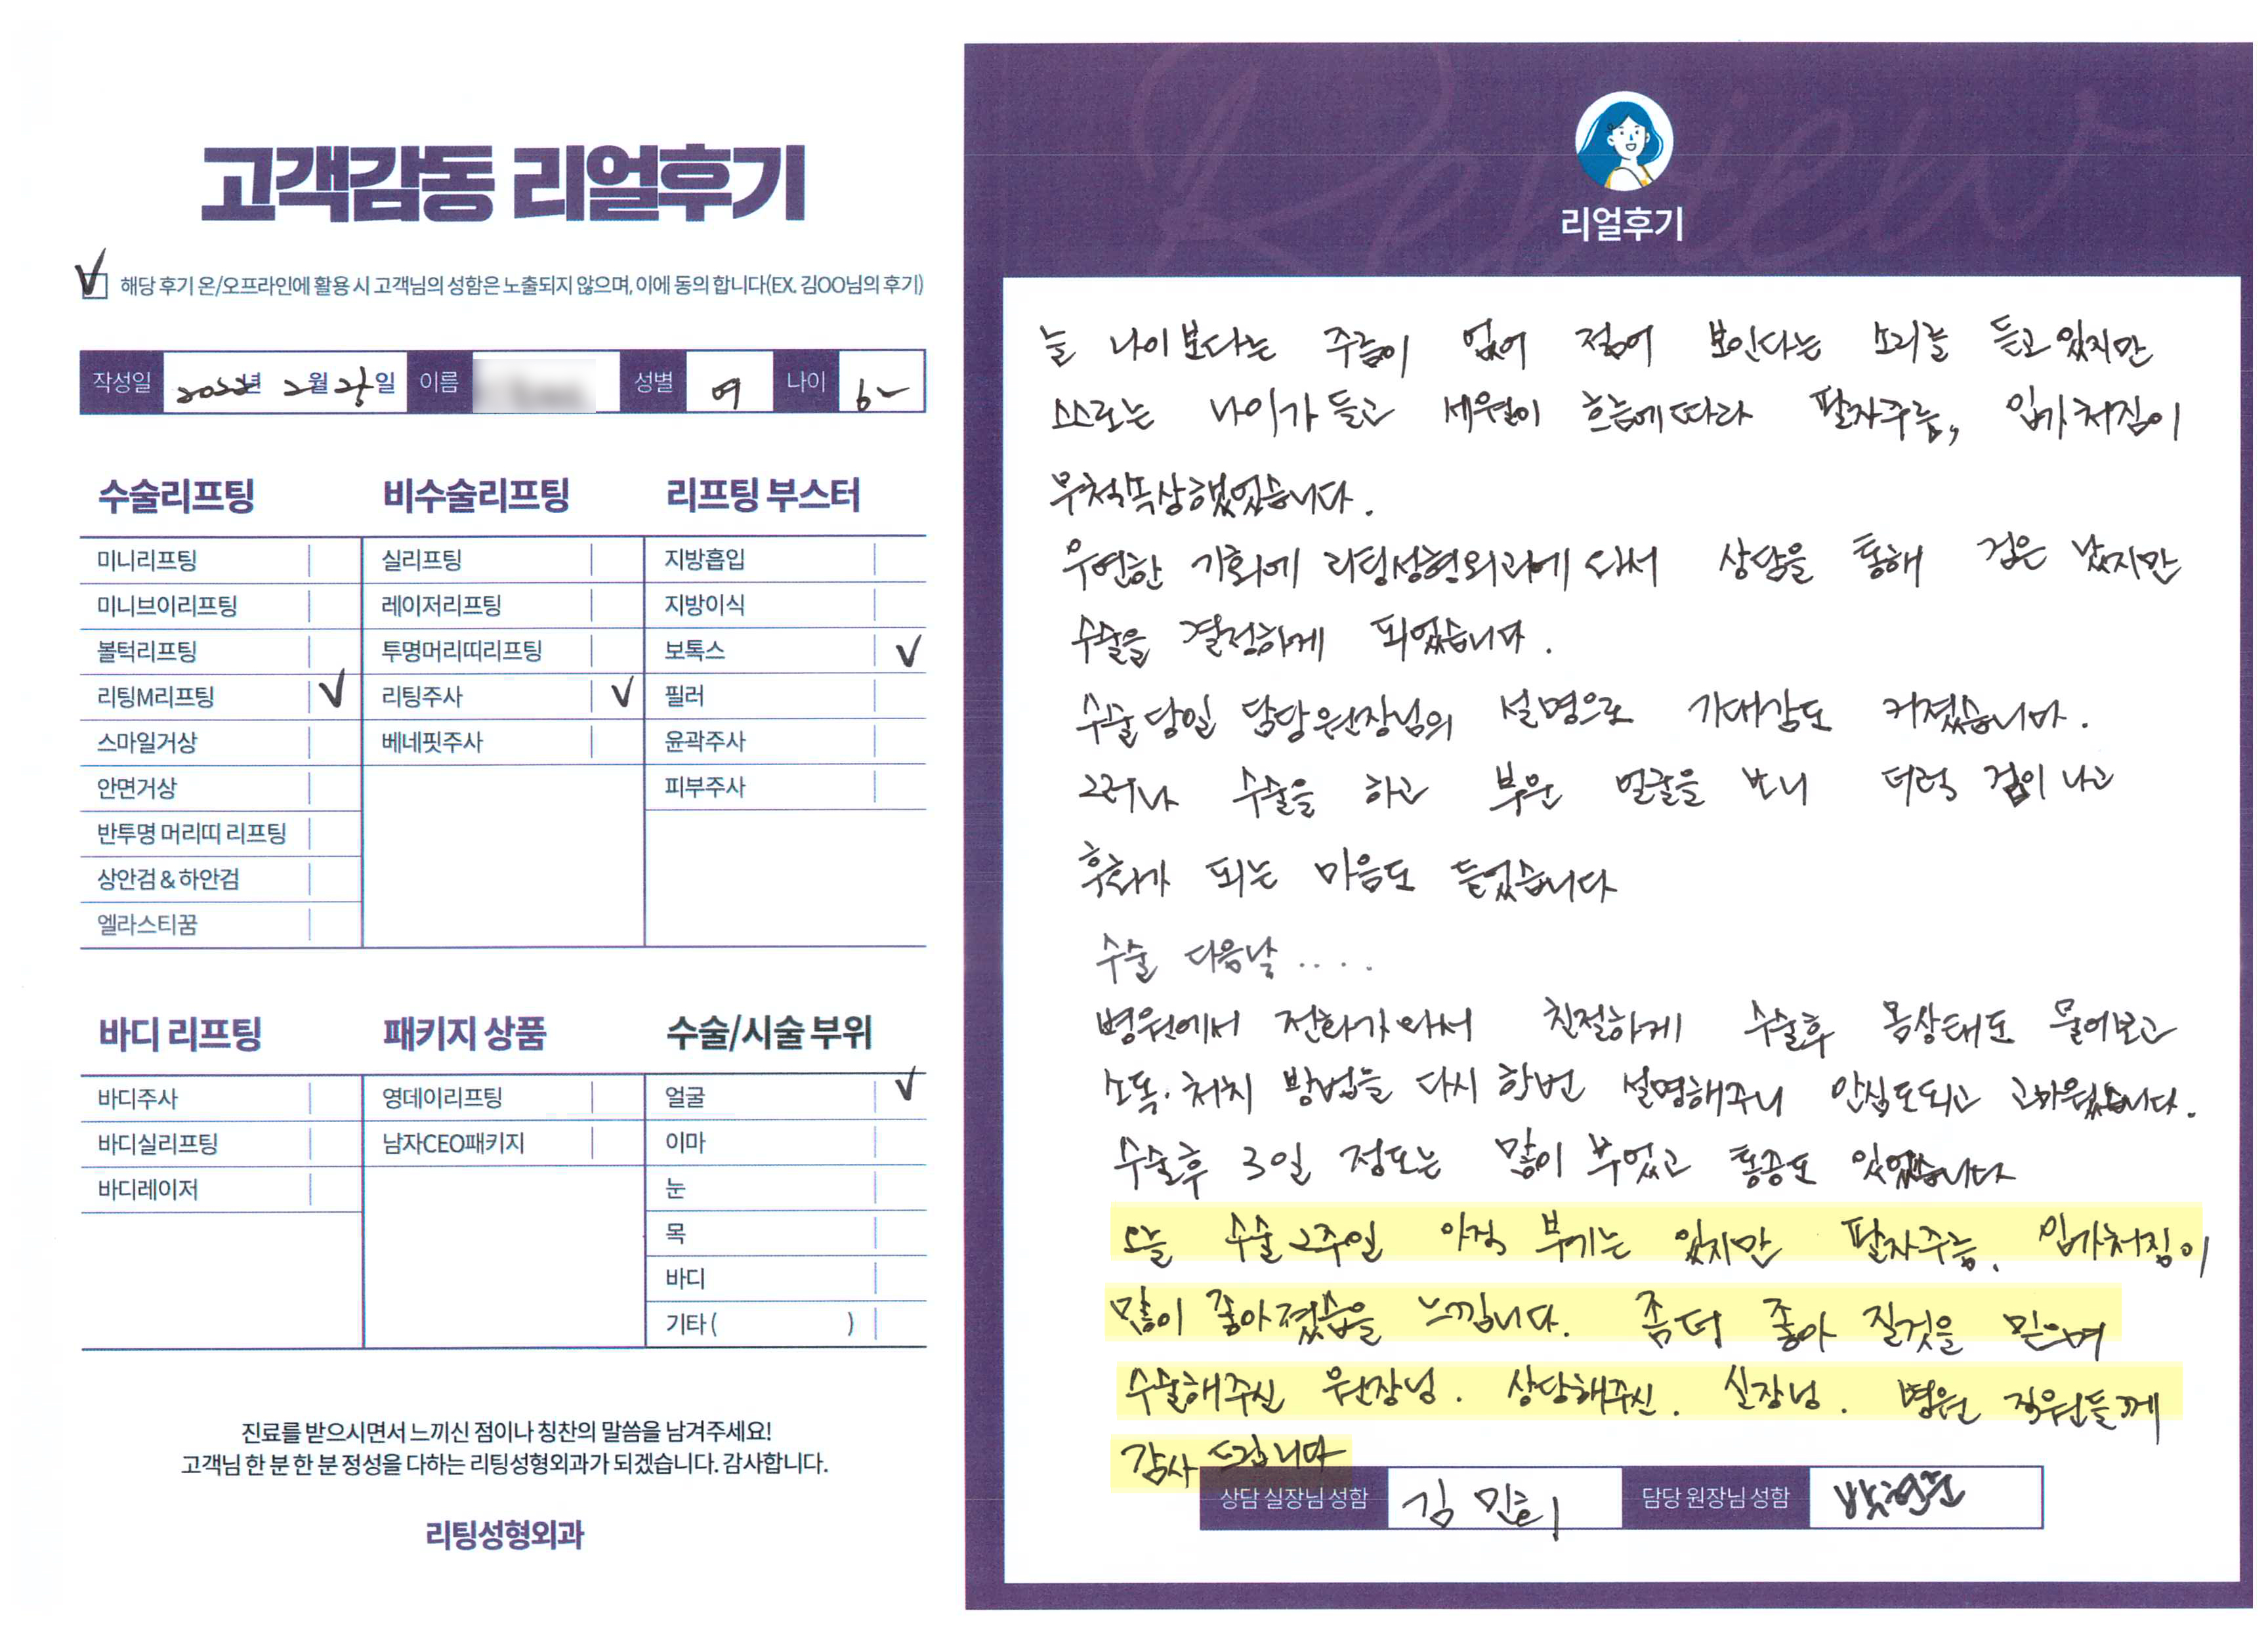 고객감동 리얼후기
해당 후기 온/오프라인에 활용 시 고객님의 성함은 노출되지 않으며, 이에 동의 합니다(EX. 김OO님의 후기)
작성일 2022년 2월 일 이름 성별 여 나이
수술리프팅
미니리프팅
미니브이리프팅
볼턱리프팅
리팅M리프팅 ✓
스마일거상
안면거상
반투명 머리띠 리프팅
상안검 & 하안검
엘라스티꿈
비수술리프팅
실리프팅
레이저리프팅
투명머리띠리프팅
리팅주사 ✓
베네핏주사
리프팅 부스터
지방흡입
지방이식
보톡스 ✓
필러
윤곽주사
피부주사
바디 리프팅
바디주사
바디실리프팅
바디레이저
패키지 상품
영데이리프팅
남자CEO패키지
수술/시술 부위
얼굴 ✓
이마
눈
목
바디
기타 ( )
진료를 받으시면서 느끼신 점이나 칭찬의 말씀을 남겨주세요!
고객님 한 분 한 분 정성을 다하는 리팅성형외과가 되겠습니다. 감사합니다.
리팅성형외과
Review
리얼후기
늘 나이보다는 주름이 없어 젊어 보인다는 소리를 듣고 있지만
스스로는 나이가 들고 세월이 흐름에 따라 팔자주름, 입가처짐이
무척 속상했었습니다.
우연한 기회에 리팅성형외과에 와서 상담을 통해 겁은 났지만
수술을 결정하게 되었습니다.
수술당일 담당원장님의 설명으로 기대감도 커졌습니다.
그러나 수술을 하고 부은 얼굴을 보니 더럭 겁이 나고
후회가 되는 마음도 들었습니다
수술 다음날 ....
병원에서 전화가 와서 친절하게 수술후 몸상태도 물어보고
소독.처치 방법을 다시 한번 설명해주니 안심도되고 고마웠습니다.
수술후 3일 정도는 많이 부었고 통증도 있었습니다
오늘 수술 2주일 아직 부기는 있지만 팔자주름. 입가처짐이
많이 좋아졌음을 느낍니다. 좀더 좋아 질것을 믿으며
수술해주신 원장님. 상담해주신. 실장님. 병원 직원들께
감사 드립니다
상담 실장님 성함 김민희 담당 원장님 성함